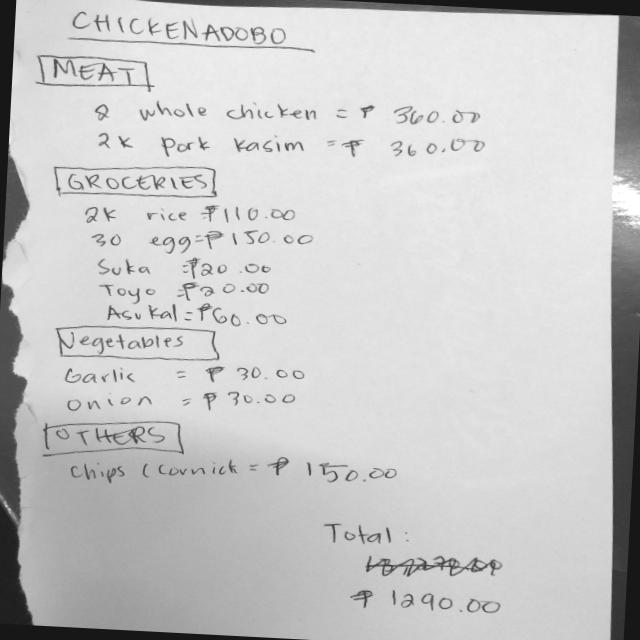 CHICKENADOBO
MEAT
2 whole chicken = ₱ 360.00
2k pork kasim = ₱ 360.00
GROCERIES
2k rice ₱110.00
30 egg=₱150.00
Suka =₱20.00
Toyo =₱20.00
Asukal=₱60.00
Vegetables
Garlic = ₱ 30.00
onion = ₱ 30.00
OTHERS
chips (cornick = ₱ 150.00
Total:
₱ 1290.00